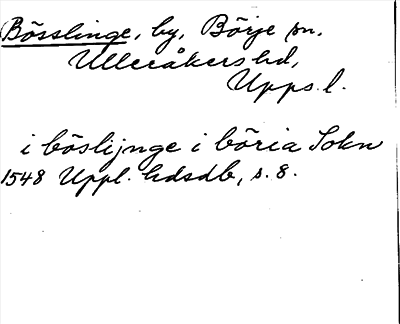 Bösslinge, by, Börje sn.
Ulleråkers hd,
Upps. l.
i böslijnge i böria Sokn
1548 Uppl. hdsdb, s. 8.